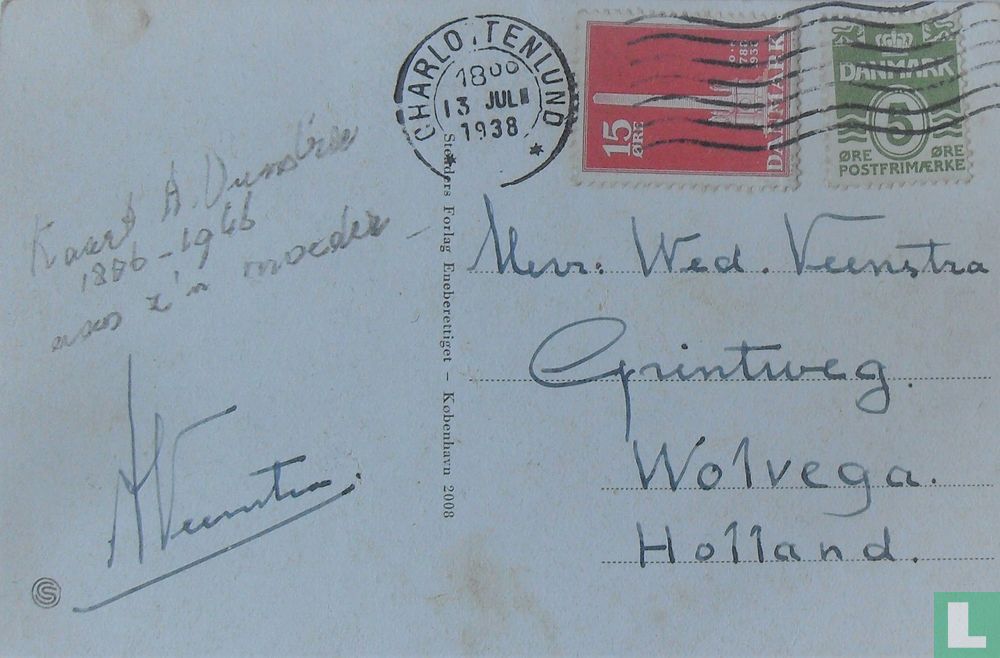 CHARLOTTENLUND
18 00
13 JULI
1938
15
ØRE
DANMARK
1788
1938
DANMARK
5
ØRE ØRE
POSTFRIMÆRKE
Kaart A.
1886-1966
aan z'n moeder
AVeenstra.
Stenders Forlag Eneberettiget – København 2008
Mevr: Wed. Veenstra
Grintweg.
Wolvega.
Holland.
S
L